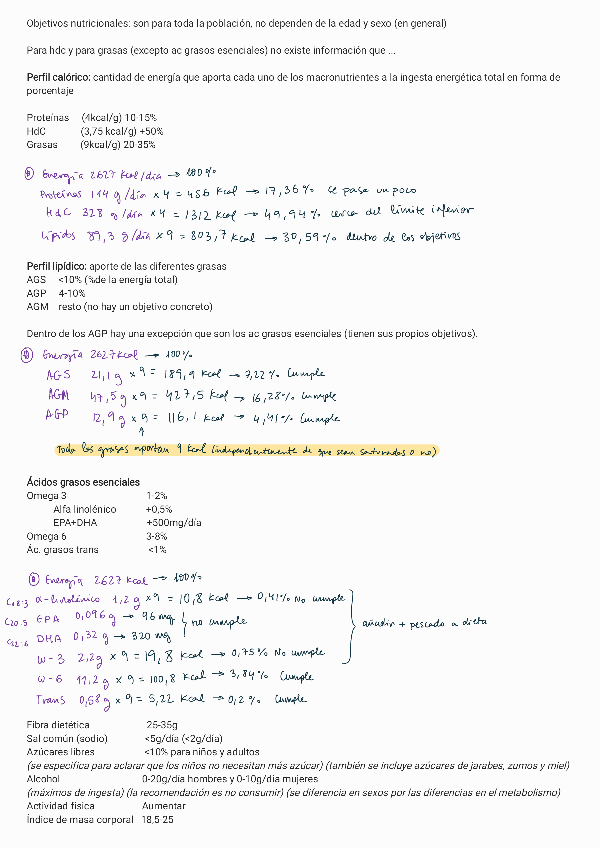 Objetivos nutricionales: son para toda la población, no dependen de la edad y sexo (en general)
Para hdc y para grasas (excepto ac grasos esenciales) no existe información que ...
Perfil calórico: cantidad de energía que aporta cada uno de los macronutrientes a la ingesta energética total en forma de
porcentaje
Proteínas (4kcal/g) 10-15%
HdC (3,75 kcal/g) +50%
Grasas (9kcal/g) 20-35%
Energía 2627 kcal/día → 100%
Proteínas 114 g/día x 4 = 456 kcal → 17,36% se pasa un poco
HdC 328 g/día x 4 = 1312 kcal → 49,94% cerca del límite inferior
Lípidos 89,3 g/día x 9 = 803,7 kcal → 30,59% dentro de los objetivos
Perfil lipídico: aporte de las diferentes grasas
AGS <10% (%de la energía total)
AGP 4-10%
AGM resto (no hay un objetivo concreto)
Dentro de los AGP hay una excepción que son los ac grasos esenciales (tienen sus propios objetivos).
Energía 2627 kcal → 100%
AGS 21,1 g x 9 = 189,9 kcal → 7,22% Cumple
AGM 47,5 g x 9 = 427,5 kcal → 16,28% Cumple
AGP 12,9 g x 9 = 116,1 kcal → 4,41% Cumple
↑
Todas las grasas aportan 9 kcal (independientemente de que sean saturados o no)
Ácidos grasos esenciales
Omega 3 1-2%
Alfa linolénico +0,5%
EPA+DHA +500mg/día
Omega 6 3-8%
Ác. grasos trans <1%
Energía 2627 kcal → 100%
C18:3 α-linolénico 1,2 g x 9 = 10,8 kcal → 0,41% No cumple
C20:5 EPA 0,096 g → 96 mg } no cumple
añadir + pescado a dieta
C22:6 DHA 0,32 g → 320 mg
w-3 2,2 g x 9 = 19,8 kcal → 0,75% No cumple
w-6 11,2 g x 9 = 100,8 kcal → 3,84% Cumple
Trans 0,58 g x 9 = 5,22 kcal → 0,2% Cumple
Fibra dietética 25-35g
Sal común (sodio) <5g/día (<2g/día)
Azúcares libres <10% para niños y adultos
(se especifica para aclarar que los niños no necesitan más azúcar) (también se incluye azúcares de jarabes, zumos y miel)
Alcohol 0-20g/día hombres y 0-10g/día mujeres
(máximos de ingesta) (la recomendación es no consumir) (se diferencia en sexos por las diferencias en el metabolismo)
Actividad física Aumentar
Índice de masa corporal 18,5-25